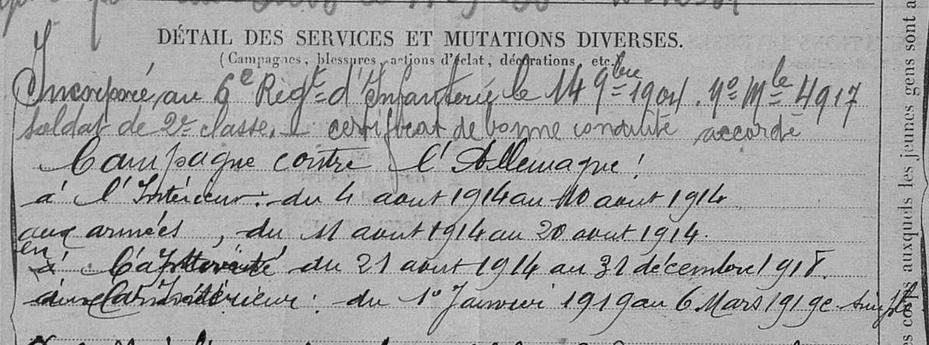 DÉTAIL DES SERVICES ET MUTATIONS DIVERSES.
(Campagnes, blessures, actions d'éclat, décorations, etc.)
Incorporé au 6e Régt d'Infanterie le 14 9bre 1904. No Mle 4917
soldat de 2e classe. — certificat de bonne conduite accordé
Campagne contre l'Allemagne :
à l'Intérieur : du 4 aout 1914 au 10 aout 1914
aux armées, du 11 aout 1914 au 20 aout 1914.
en Captivité du 21 aout 1914 au 31 décembre 1918.
intérieur : du 1o Janvier 1919 au 6 Mars 1919 C. Simple
es corps auxquels les jeunes gens sont a